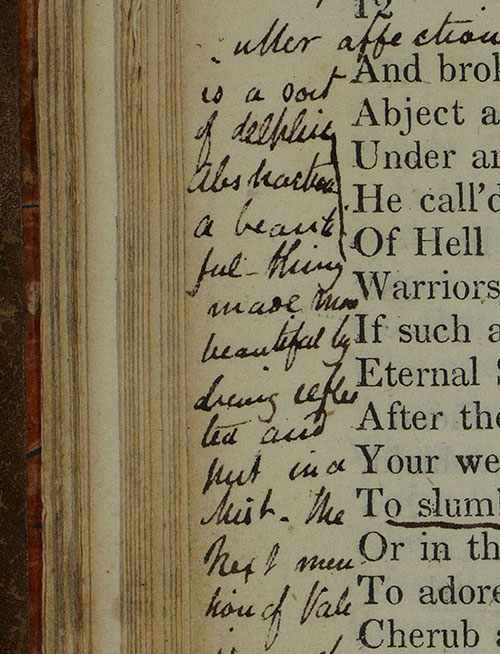 12
utter affection
is a sort
of delphic
Abstraction
a beauti
ful - thing
made more
beautiful by
being reflec
ted and
put in a
Mist - the
Next men
tion of Vale
And brok
Abject a
Under an
He call'd
Of Hell
Warriors
If such a
Eternal S
After the
Your we
To slumb
Or in th
To adore
Cherub a